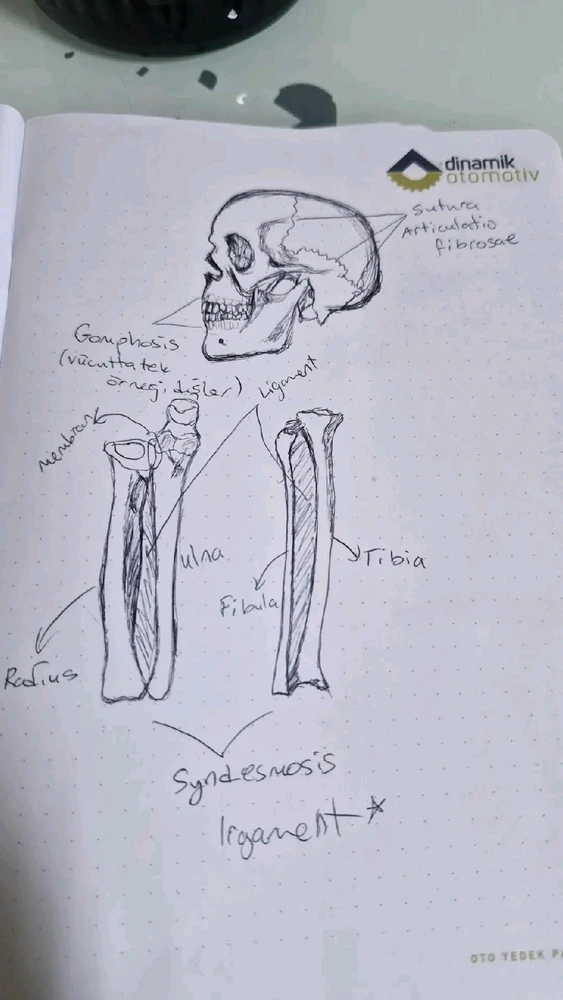 dinamik
otomotiv
Sutura
Articulatio
fibrosae
Gomphosis
(vücutta tek
örneği, dişler)
Ligament
membran
ulna
Tibia
Fibula
Radius
Syndesmosis
ligament *
OTO YEDEK